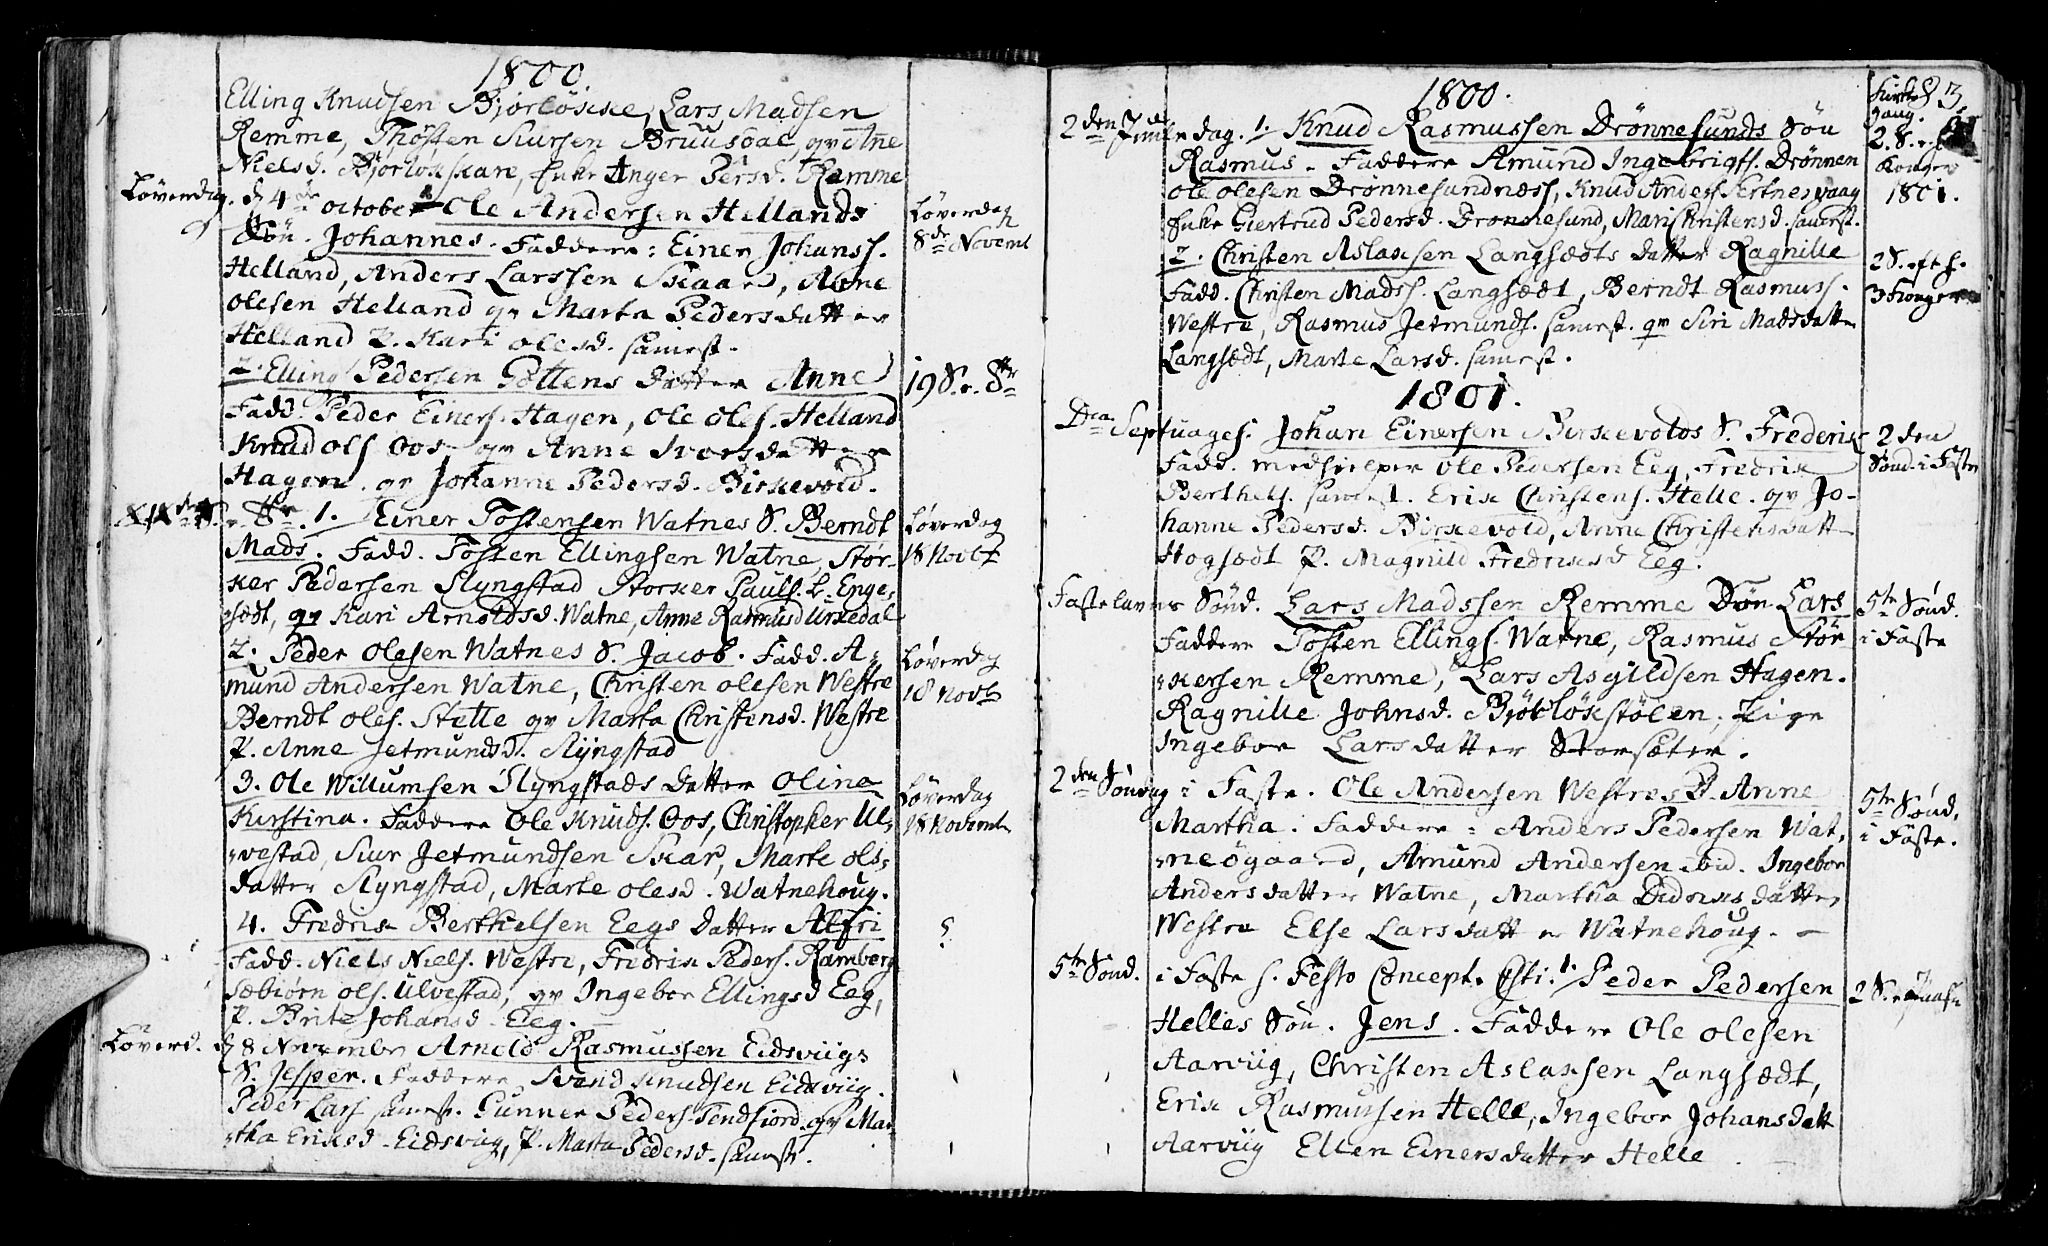 1800.
Elling Knudsen Bjørløkke, Lars Madsen
Remme, Thosten Siursen Bruusdal, qv Ane
Nielsd. Bjørløkskare, Enke Inger Persd. Remme
Løverdag. d 4de october Ole Andersen Hellands
Søn. Johannes. Faddere: Einer Johanss.
Helland, Anders Larssen Skaar, Arne
olesen Helland qv Marta Pedersdatter
Helland P. Kari olesd. samest.
2. Elling Pedersen Gottens datter Anne
Fadd. Peder Einers. Hagen, ole oles. Helland
Knud ols Oos. qv Anne Ivorsdatter
Hagen. qv Johanne Pedersd. Birkevold.
1. Einer Tostensen Watnes S. Berndt
Mads. Fadd. Tosten Ellingsen Watne, Stor-
ker Pedersen Slyngstad Storker Pauls. L. Enge-
sædt, qv Kari Arnoldsd. Watne, Anne Rasmusd Urkedal
2. Peder olesen Watnes S. Jacob. Fadd. A-
mund Andersen Watne, Christen olesen Westre
Berndt oles. Stette qv Marta Christensd. Westre
P. Anne Jetmundsd. Slyngstad
3. Ole Willumsen Slyngstads datter Olina
Kirstina. Faddere Ole Knuds. Oos, Christopher Ul-
vestad, Siur Jetmundsen Skar, Marte ols-
datter Slyngstad, Marte olesd. Watnehoug.
4. Fredrik Berthelsen Eegs datter Alfri
Fadd. Niels Niels. Westre, Fredrik Peders. Ramberg
Sæbiørn ols. Ulvestad, qv Ingebor Ellingsd Eeg,
P. Brite Johansd. Eeg.
Løverd. d 8 November Arnold Rasmussen Eidsviigs
S. Jesper. Faddere Svend Knudsen Eidsviig.
Peder Lars samest. Gunner Peders Tendfiord. qv Mar-
tha Eriksd. Eidsviig, P. Marta Pedersd. samest.
Løverdag
8de Novemb
19 S. e. Str
Løverdag
18 Novbr
Løverdag
18 Novb
Løverdag
18 Novemb
1800.
2den Juuledag. 1. Knud Rasmussen Drønnesunds Søn
Rasmus. Faddere Amund Ingebrigts. Drønnen
ole olesen Drønnesundnæss, Knud Anders Kertnesvaag
Enke Giertrud Pedersd. Drønnesund, Mari Christensd. samest.
2. Christen Aslaksen Langsædts datter Ragnille
Fadd. Christen Madss. Langsædt, Berndt Rasmuss.
Westre, Rasmus Jetmunds. samest. qv Siri Madsdatter
Langsædt, Marte Larsd. samest.
1801.
Dca Septuages. Johan Einersen Birkevolds S. Frederik
Fadd. medhielper Ole Pedersen Eeg, Fredrik
Berthels. samest. Erik Christens. Helle. qv Jo-
hanne Pedersd. Birkevold, Anne Christensdatter
Hogsædt P. Magnild Fredriksd Eeg.
Fastelavns Sønd. Lars Madssen Remme Søn Lars
Faddere Tosten Ellings. Watne, Rasmus Stor-
kersen Remme, Lars Asgildsen Hagen.
Ragnille Johnsd. Bjørløkstølen, Pige
Ingebor Larsdatter Storsæter.
2den Søndag i Faste. Ole Andersen Westres D. Anne
Martha. Faddere: Anders Pedersen Wat-
neøgaard, Amund Andersen ibid. Ingebor
Andersdatter Watne, Martha Didriksdatter
Westre Else Larsdatter Watnehoug.
5te Sønd. i Faste s. Festo Concept. Chsti. 1. Peder Pedersen
Helles Søn. Jens. Faddere Ole olesen
Aarviig, Christen Aslaksen Langsædt,
Erik Rasmussen Helle, Ingebor Johansdatt
Aarviig Ellen Einersdatter Helle
1801.
2den
Sønd. i Faste
5te Sønd.
i Faste
5te Sønd.
i Faste.
2 S. e. Paaske